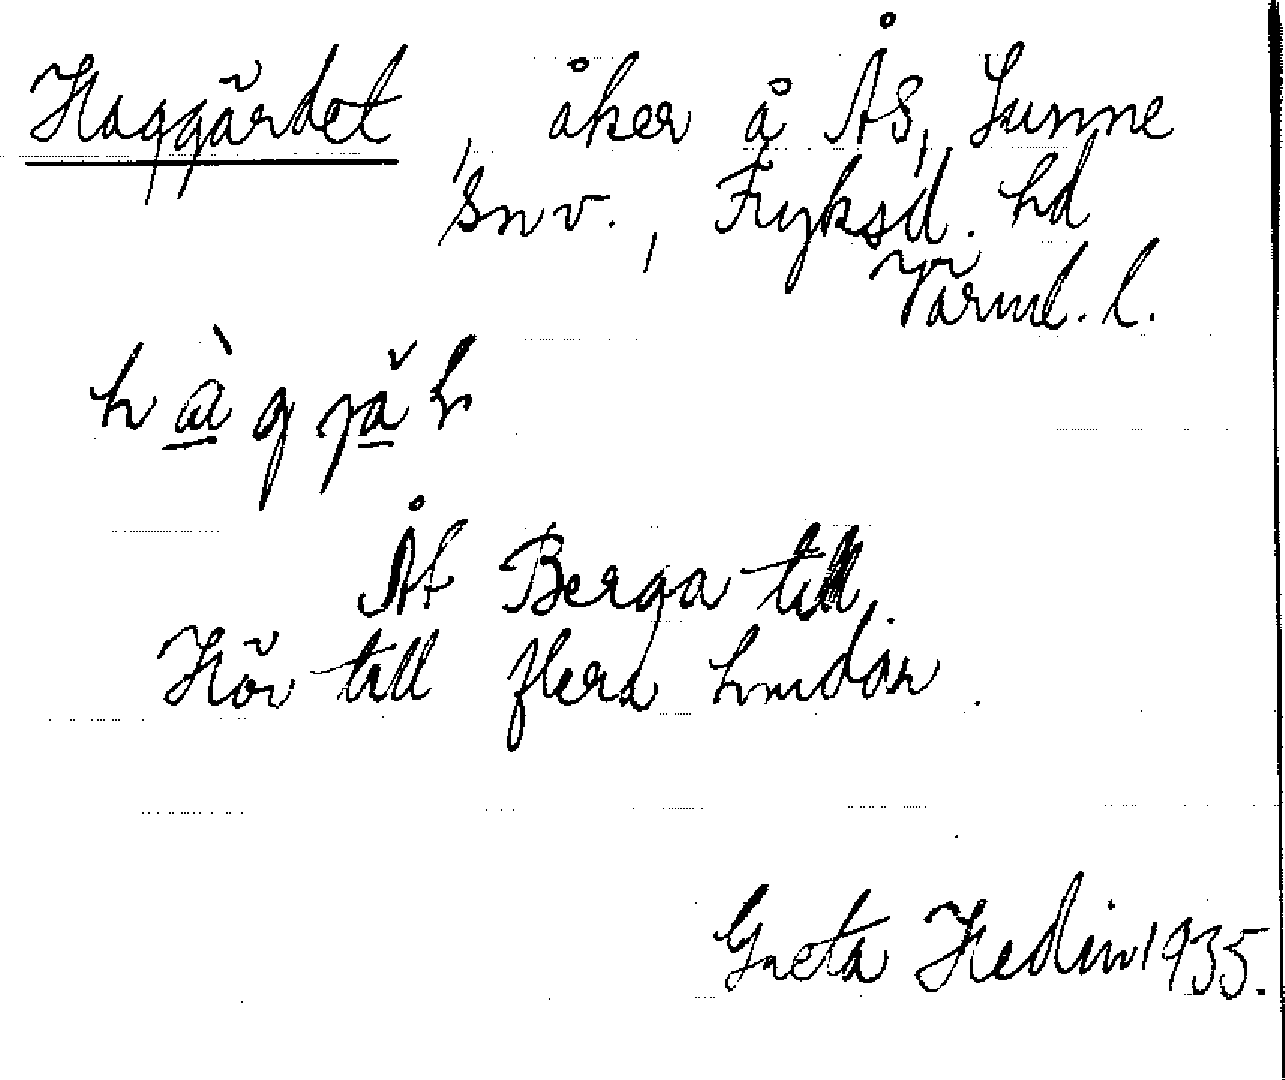 Haggärdet, åker å Ås, Sunne
snv., Fryksd. hd
Värml. l.
Åt Berga till.
Hör till flera hmdar.
Greta Hedin 1935.